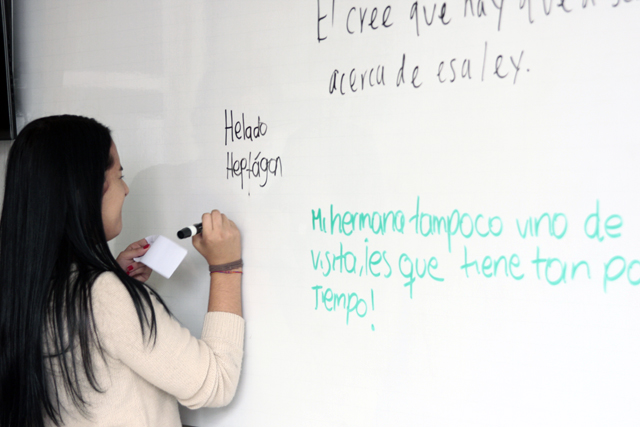 El cree que hay que
acerca de esa ley.
Helado
Heptágon
Mi hermana tampoco vino de
visita, ¡es que tiene tan po
Tiempo!